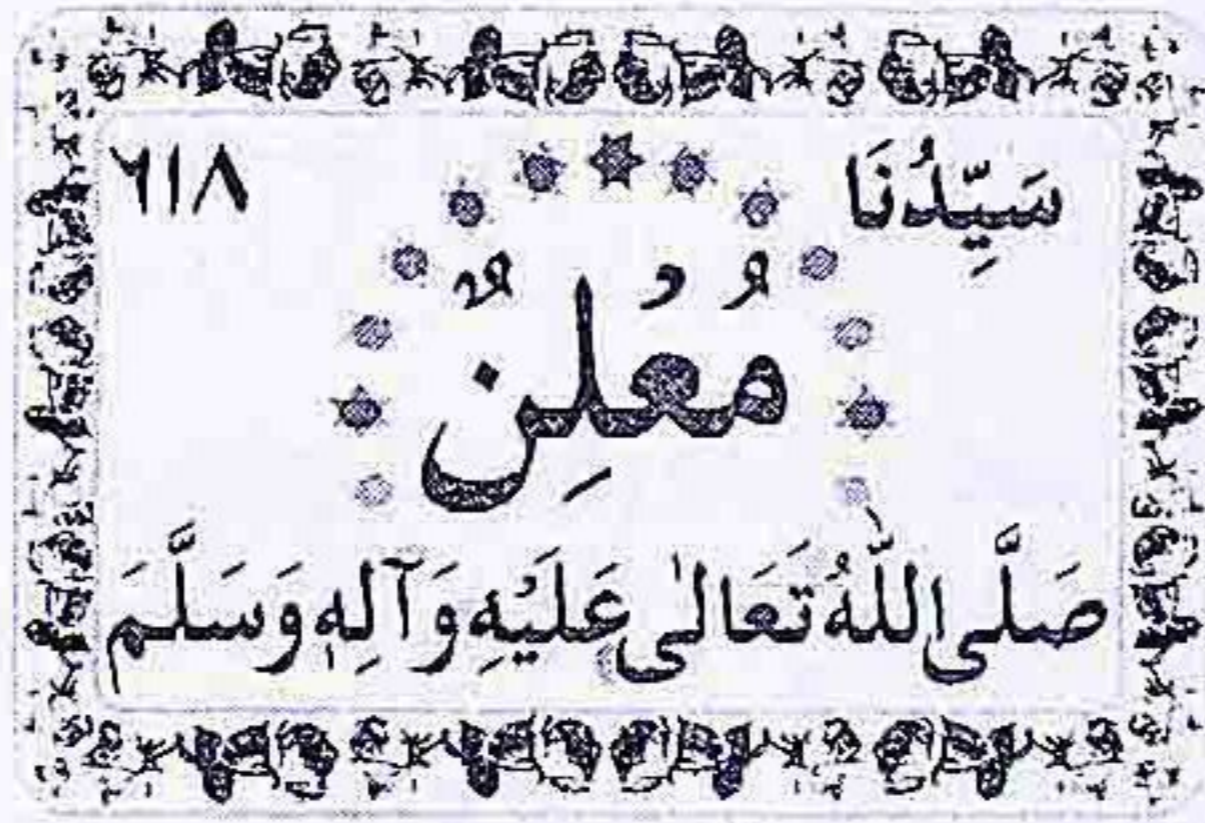 سَيِّدُنَا ٦١٨
مُعْلِنٌ
صَلَّى اللّٰهُ تَعَالىٰ عَلَيْهِ وَآلِهٖ وَسَلَّمَ